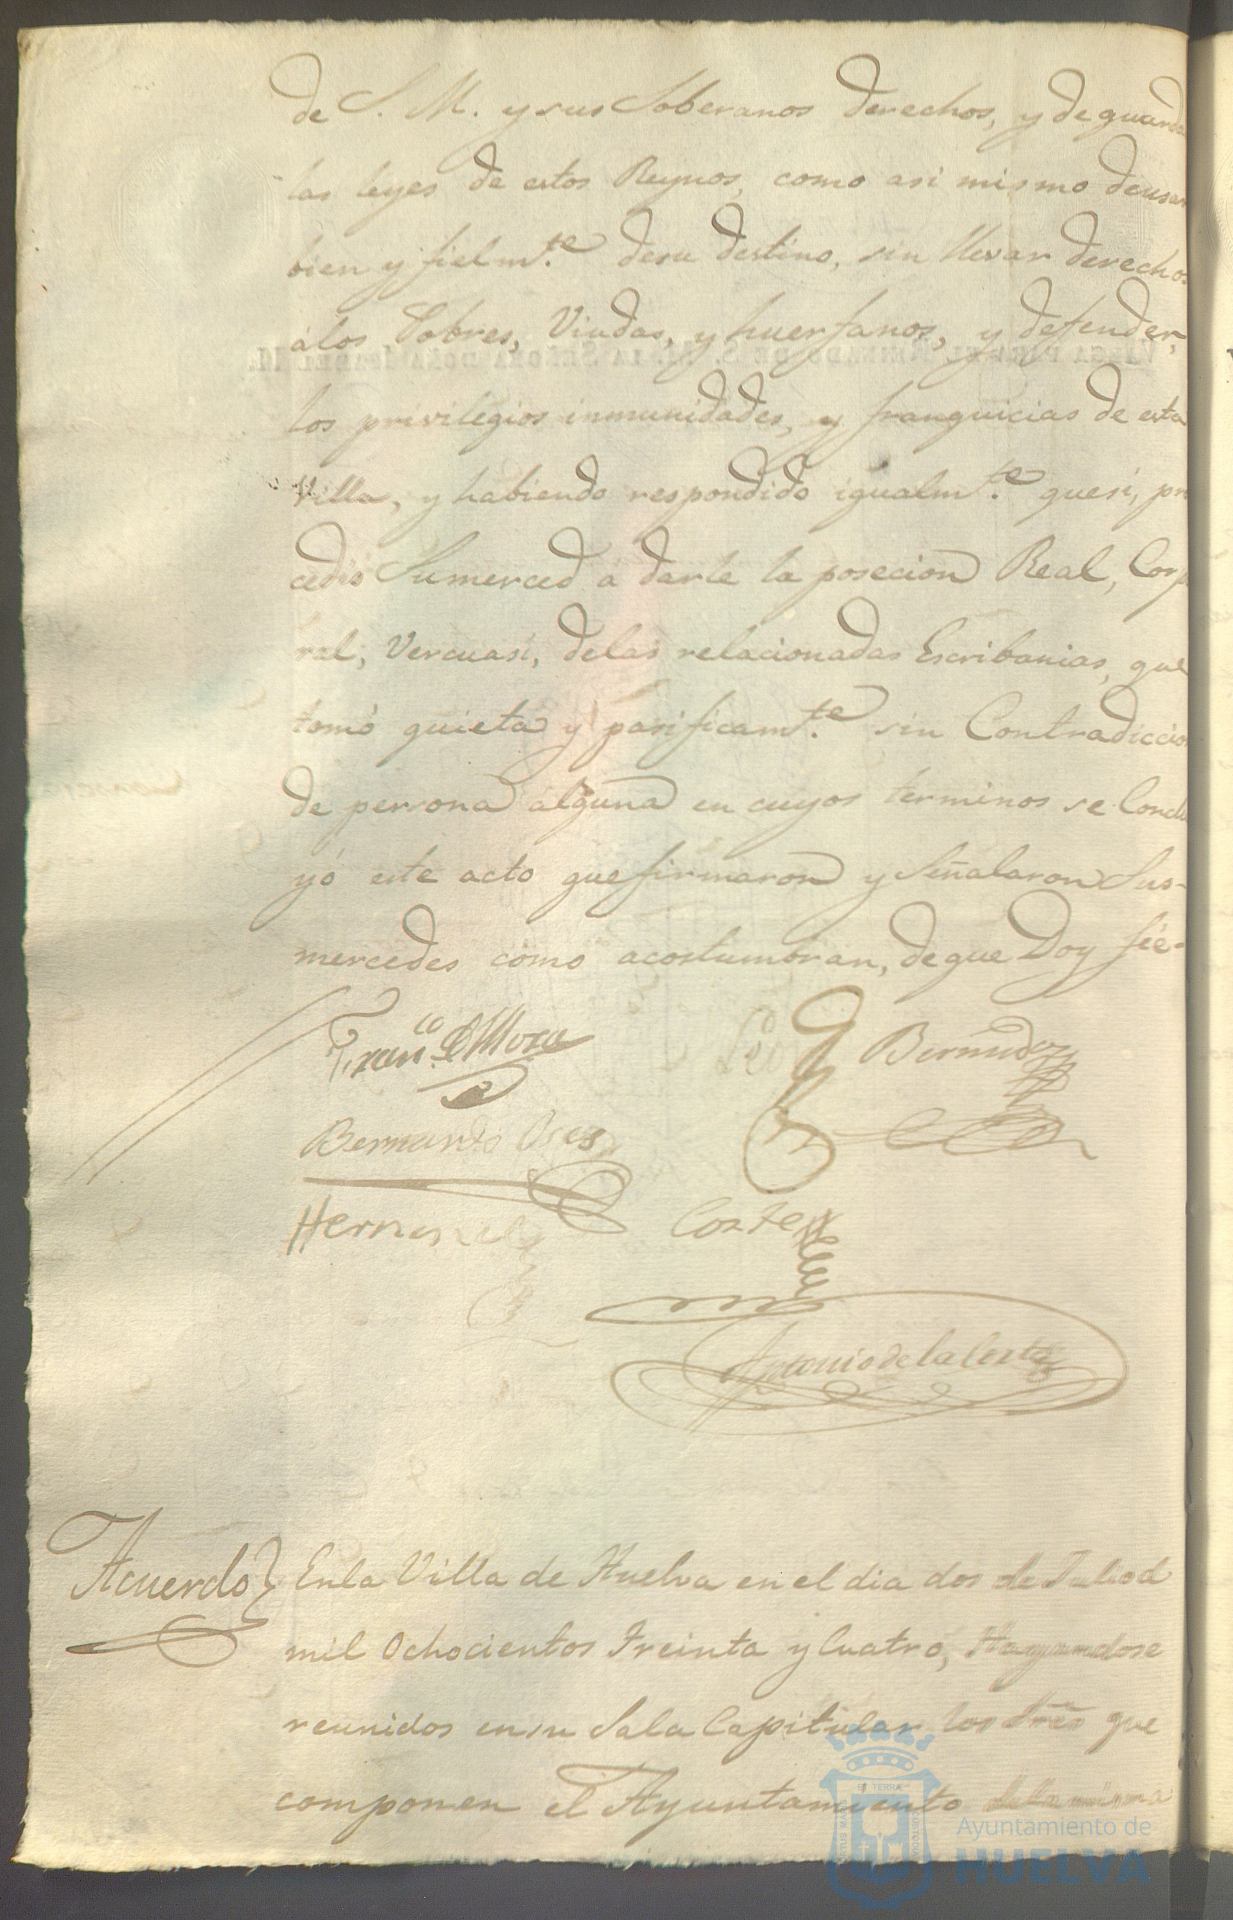 de S. M. y sus Soberanos derechos, y de guarda
las leyes de estos Reynos, como asi mismo de usar
bien y fielm.te desu destino, sin llevar derechos
álos Pobres, Viudas, y huerfanos, y defender,
los privilegios inmunidades, y franquicias de esta
Villa, y habiendo respondido igualm.te quesi, pro
cedió Sumerced á darle la posecion Real, Corpo
ral, Vercuasi, delas relacionadas Escribanias, que
tomó quieta y pasificam.te sin Contradiccion
de persona alguna en cuyos terminos se Conclu
yó este acto que firmaron y Señalaron Sus-
mercedes como acostumbran, de que Doy feé-
Fran.co de Mora
Bermudez
Bernardo Oses
Cortes
Antonio de la Corte
Acuerdo} Enla Villa de Huelva en el dia dos de Julio d
mil Ochocientos Treinta y Cuatro, Hayandose
reunidos en su Sala Capitular los Sres que
componen el Ayuntamiento de la misma
Ayuntamiento de
HUELVA